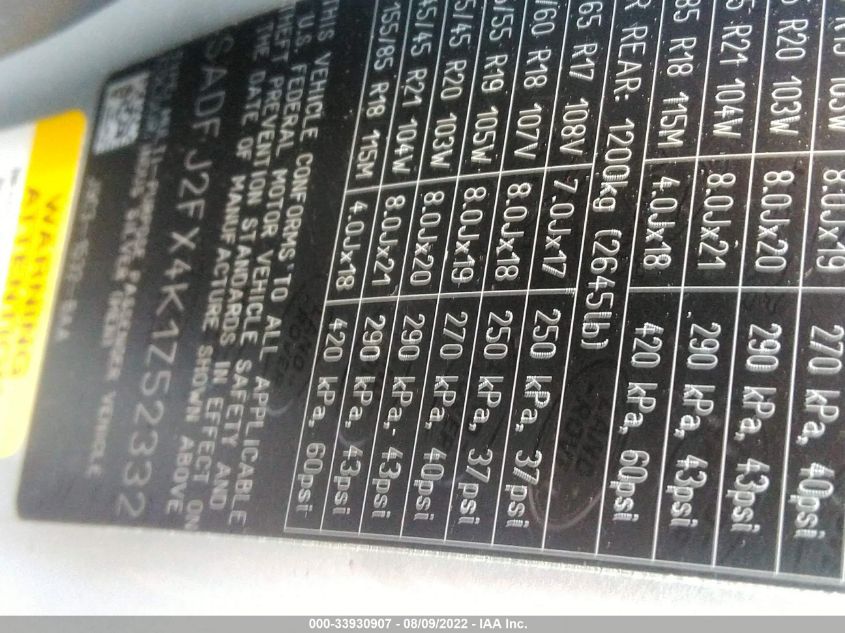 /65 R17 108V 7.0Jx17 250 kPa, 37psi
/60 R18 107V 8.0Jx18 250 kPa, 37psi
/55 R19 105W 8.0Jx19 270 kPa, 40psi
5/45 R20 103W 8.0Jx20 290 kPa, 43psi
45/45 R21 104W 8.0Jx21 290 kPa, 43psi
155/85 R18 115M 4.0Jx18 420 kPa, 60psi
R REAR: 1200kg (2645lb)
R19 105W 8.0Jx19 270 kPa, 40psi
R20 103W 8.0Jx20 290 kPa, 43psi
R21 104W 8.0Jx21 290 kPa, 43psi
85 R18 115M 4.0Jx18 420 kPa, 60psi
THIS VEHICLE CONFORMS TO ALL APPLICABLE
U.S. FEDERAL MOTOR VEHICLE SAFETY AND
THEFT PREVENTION STANDARDS IN EFFECT ON
THE DATE OF MANUFACTURE SHOWN ABOVE
SADFJ2FX4K1Z52332
PASSENGER VEHICLE
LAND ROVER
LAND ROVER
WARNING
000-33930907 - 08/09/2022 - IAA Inc.